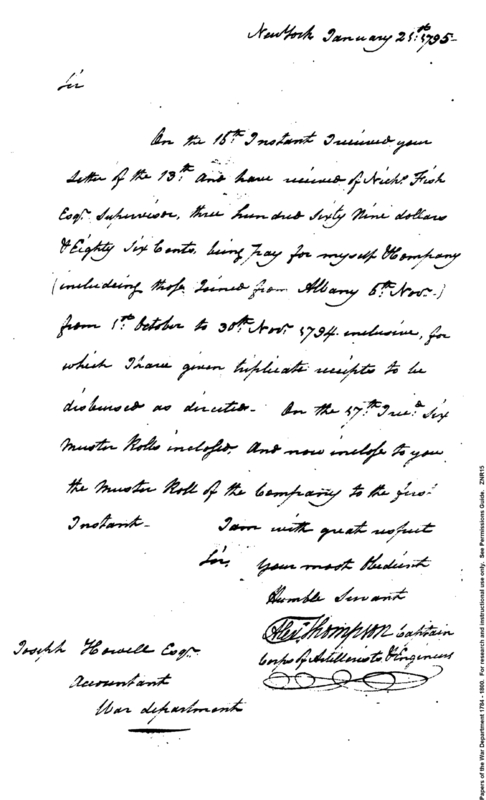 New York January 21st. 1795-
Sir
On the 15th. Instant I received your
Letter of the 13th. and have received of Nichs. Fish
Esqr. Supervisor, three hundred Sixty Nine dollars
& Eighty Six Cents, being pay for myself & Company
(includeing those Joined from Albany 6th. Novr.)
from 1st. October to 30th. Novr. 1794. inclusive, for
which I have given triplicate receipts to be
disbursed as directed- On the 17th. Six
Muster Rolls inclosed, And now inclose to you
the Muster Roll of the Company to the first
Instant- I am with great respect
Sir, Your most Obedient
Humble Servant
Alexr. Thompson Captain
Corps of Artillerists & Engineers
Joseph Howell Esqr.
Accountant
War department
Papers of the War Department 1784 - 1800. For research and instructional use only. See Permissions Guide. ZNR15